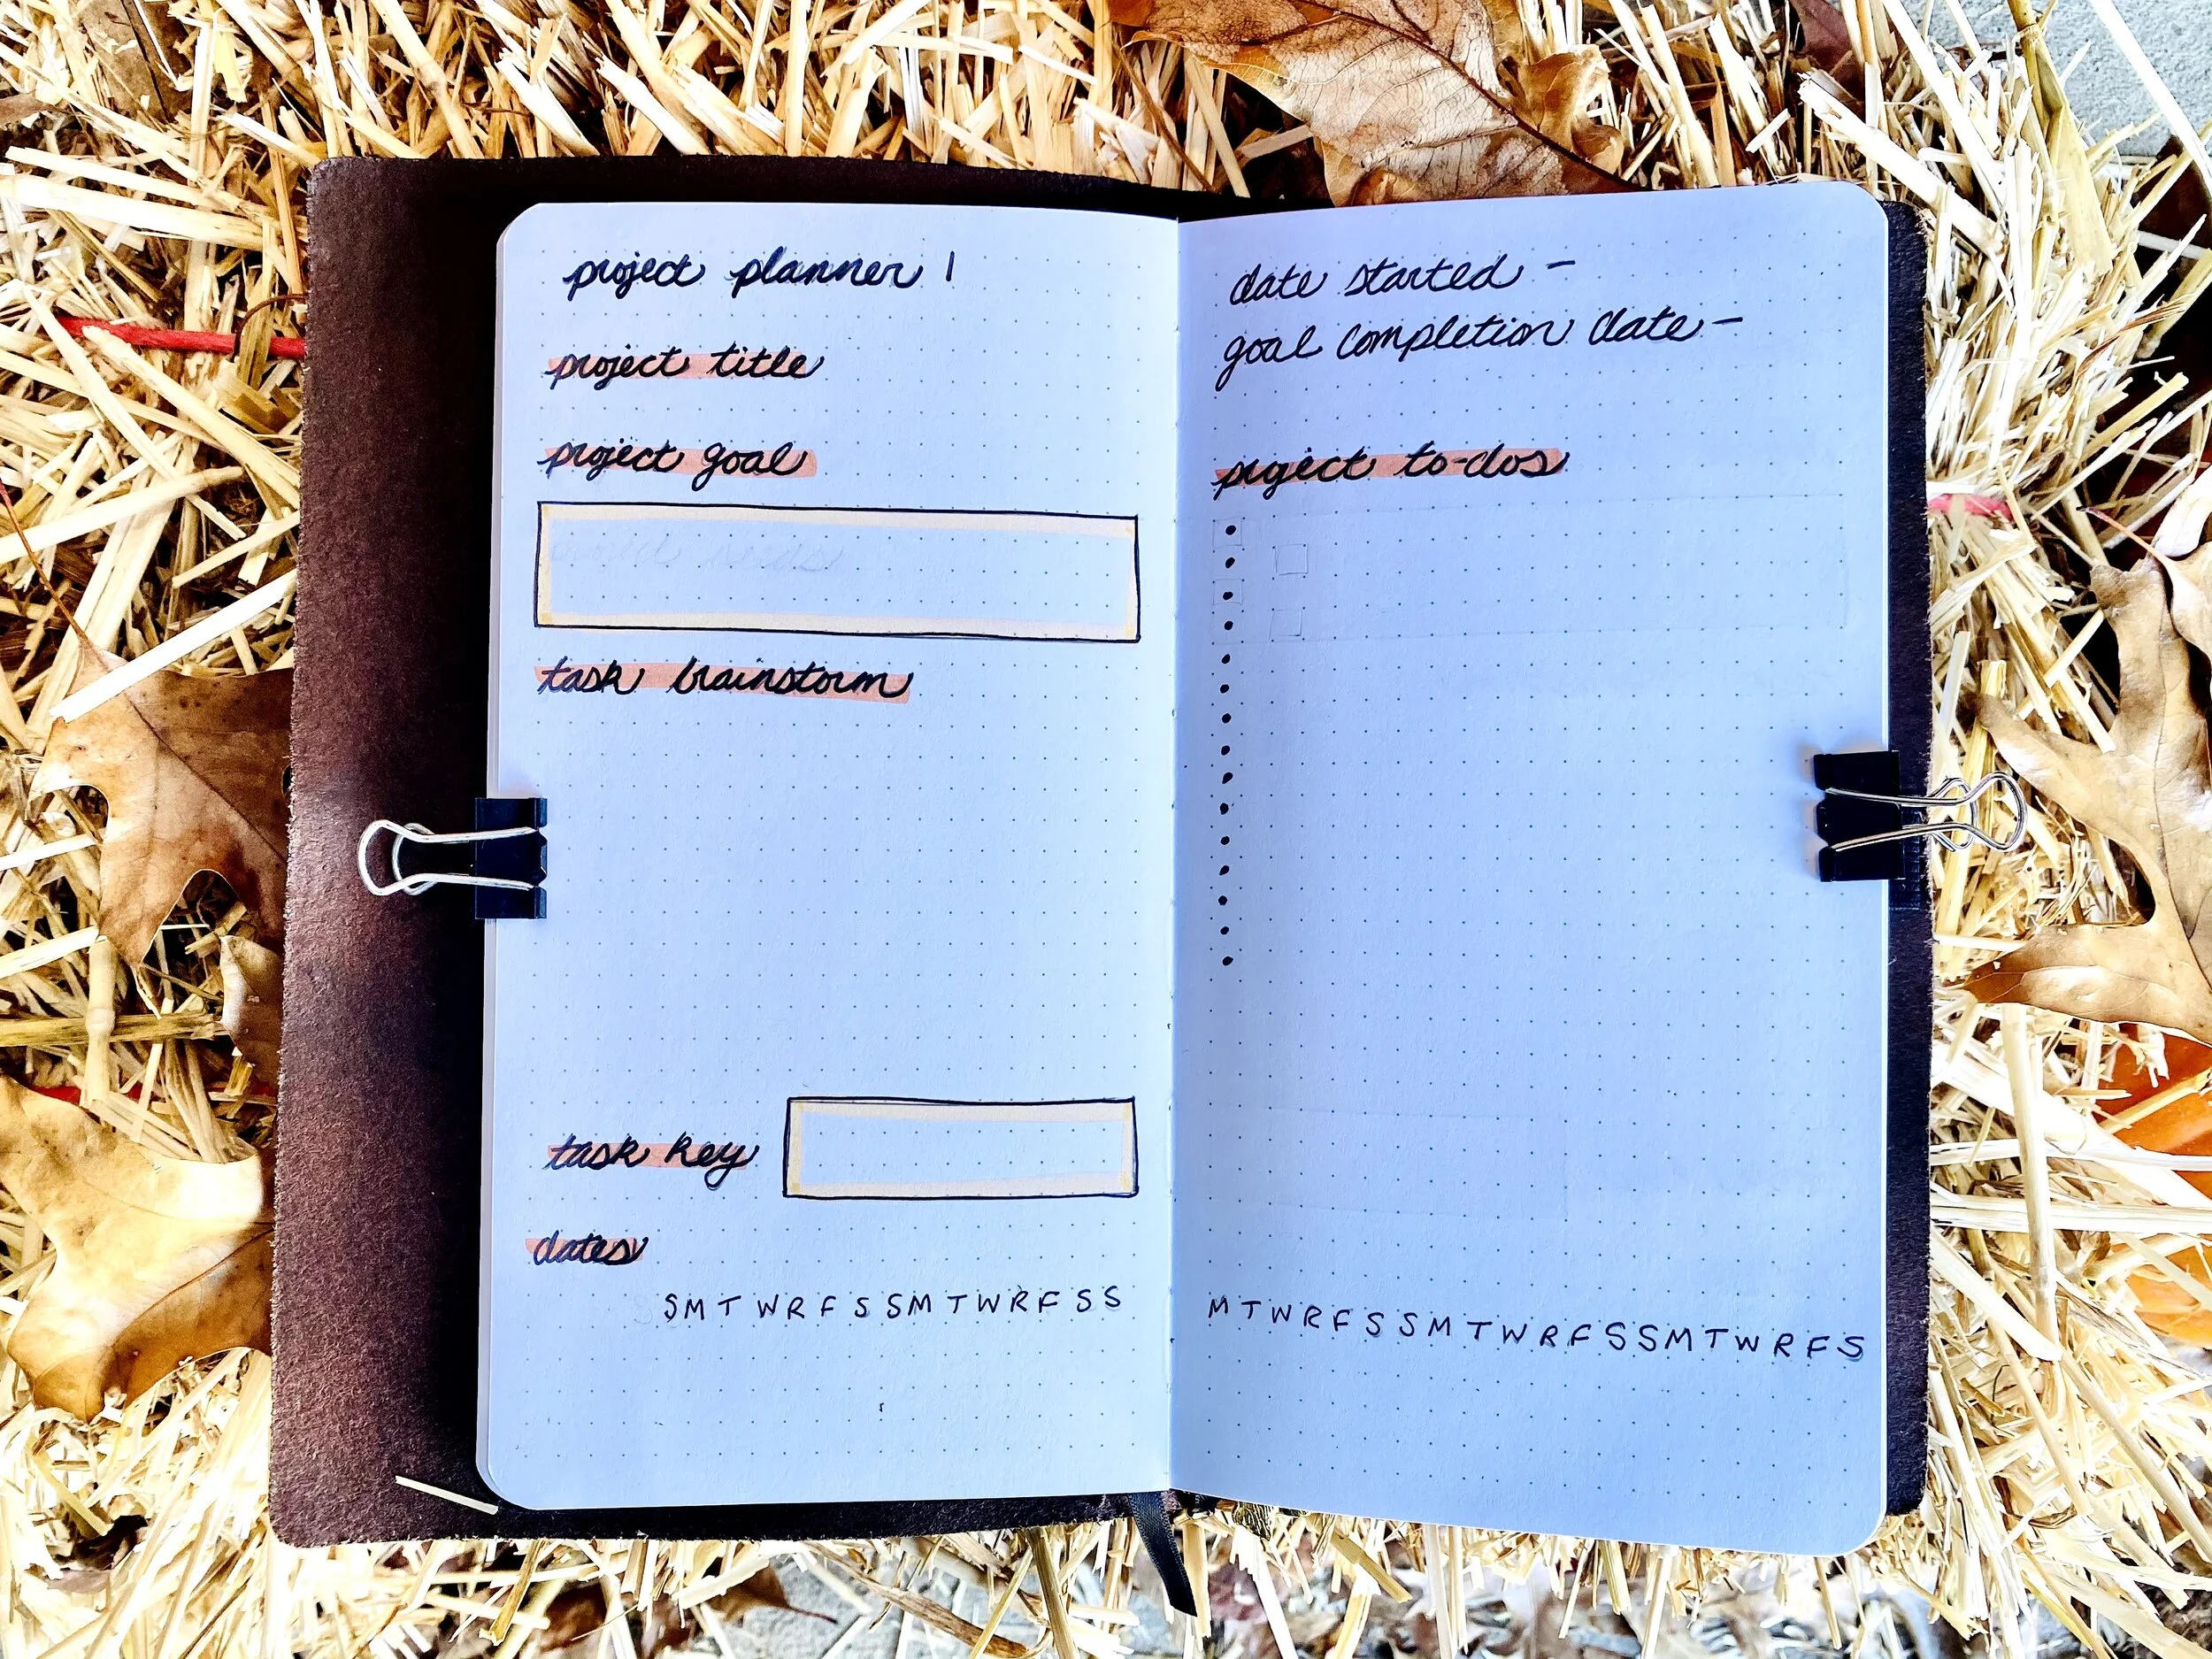 project planner 1
project title
project goal
project needs
task brainstorm
task key
dates
S M T W R F S S M T W R F S S
date started -
goal completion date -
project to-dos
M T W R F S S M T W R F S S M T W R F S